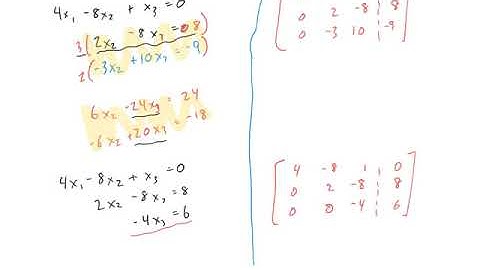 4x₁ - 8x₂ + x₃ = 0
3(2x₂ - 8x₃ = 8)
2(-3x₂ + 10x₃ = -9)
6x₂ - 24x₃ = 24
-6x₂ + 20x₃ = -18
4x₁ - 8x₂ + x₃ = 0
2x₂ - 8x₃ = 8
-4x₃ = 6
0 2 -8 8
0 -3 10 -9
4 -8 1 0
0 2 -8 8
0 0 -4 6